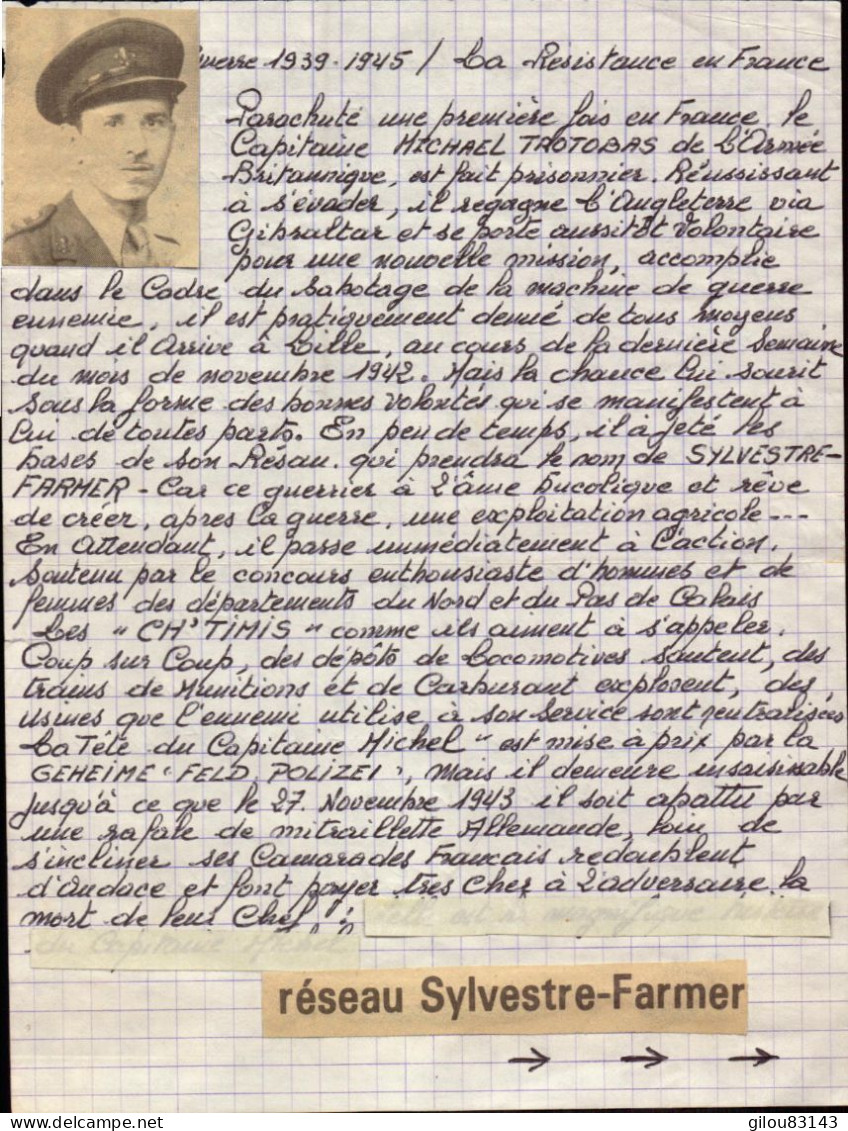 Guerre 1939-1945 / La Resistance en France
Parachuté une première fois en France, le
Capitaine MICHAEL TROTOBAS de l'Armée
Britannique, est fait prisonnier. Réussissant
à s'évader, il regagne l'Angleterre via
Gibraltar et se porte aussitôt Volontaire
pour une nouvelle mission, accomplie
dans le Cadre du Sabotage de la machine de guerre
ennemie, il est pratiquement démié de tous moyens
quand il Arrive à Lille, au cours de la dernière Semaine
du mois de novembre 1942. Mais la chance lui sourit
sous la forme des bonnes volontés qui se manifestent à
lui de toutes parts. En peu de temps, il à jeté les
bases de son Résau. qui prendra le nom de SYLVESTRE-
FARMER - Car ce guerrier à l'âme bucolique et rêve
de créer, apres la guerre, une exploitation agricole ---
En Attendant, il passe immédiatement à l'action.
Soutenu par le concours enthousiaste d'hommes et de
femmes des départements du Nord et du Pas de Calais
Les "CH'TIMIS" comme ils aiment à s'appeler.
Coup sur Coup, des dépôts de Locomotives Sautent, des
trains de Munitions et de Carburant explosent, des
usines que l'ennemi utilise à son Service sont neutralisées
La Tête du Capitaine Michel" est mise à prix par la
GEHEIME "FELD. POLIZEI", mais il demeure insaisissable
Jusqu'à ce que le 27. Novembre 1943 il soit abattu par
une rafale de mitraillette Allemande, loin de
s'incliner ses Camarades Francais redoublent
d'Audace et font payer très Cher à l'adversaire la
mort de leur Chef.
Telle est la magnifique histoire
du Capitaine Michel
réseau Sylvestre-Farmer
delcampe.net
gilou83143